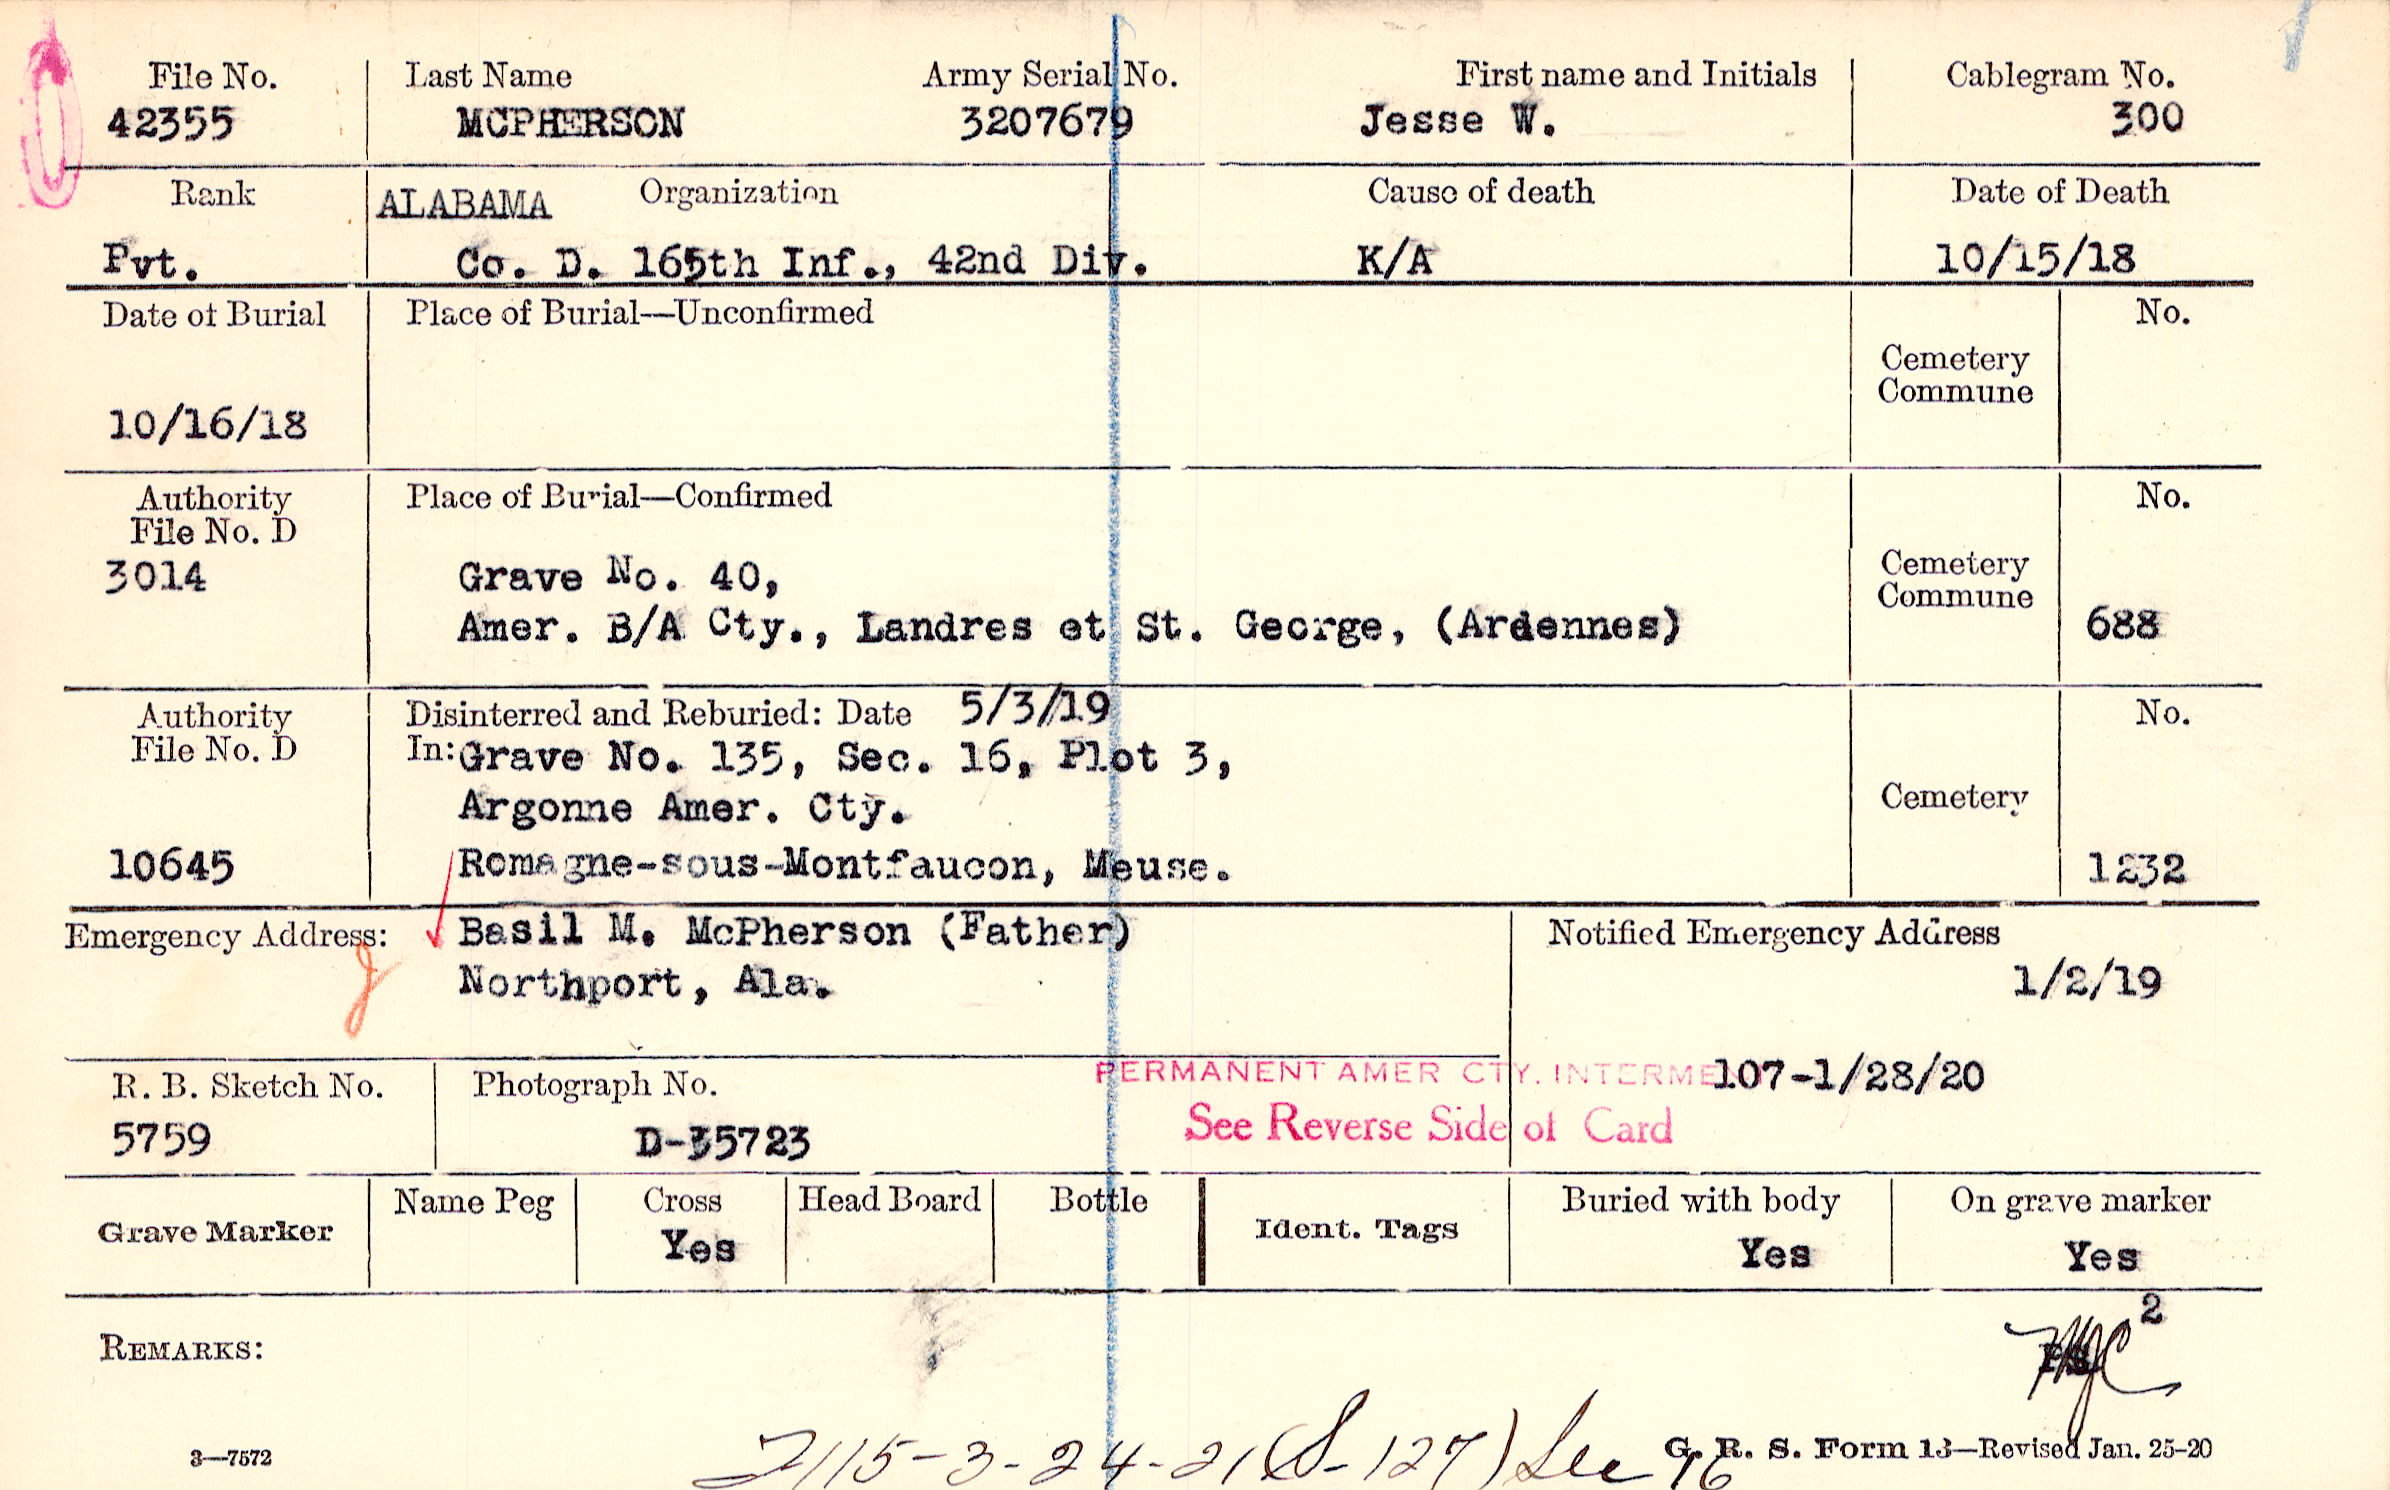 File No. Last Name Army Serial No. First name and Initials Cablegram No.
42355 MCPHERSON 3207679 Jesse W. 300
Rank ALABAMA Organization Cause of death Date of Death
Pvt. Co. D. 165th Inf., 42nd Div. K/A 10/15/18
Date of Burial Place of Burial—Unconfirmed No.
Cemetery
Commune
10/16/18
Authority Place of Burial—Confirmed No.
File No. D
3014 Grave No. 40, Cemetery
Commune
Amer. B/A Cty., Landres et St. George, (Ardennes) 688
Authority Disinterred and Reburied: Date 5/3/19 No.
File No. D In: Grave No. 135, Sec. 16, Plot 3,
Argonne Amer. Cty. Cemetery
10645 Romagne-sous-Montfaucon, Meuse. 1232
Emergency Address: Basil M. McPherson (Father) Notified Emergency Address
Northport, Ala. 1/2/19
R. B. Sketch No. Photograph No. PERMANENT AMER CTY. INTERME 107-1/28/20
5759 D-35723 See Reverse Side of Card
Grave Marker Name Peg Cross Head Board Bottle Ident. Tags Buried with body On grave marker
Yes Yes Yes
2
REMARKS:
2115-3-24-21 (S-127) See 16
3—7572 G. R. S. Form 13—Revised Jan. 25-20